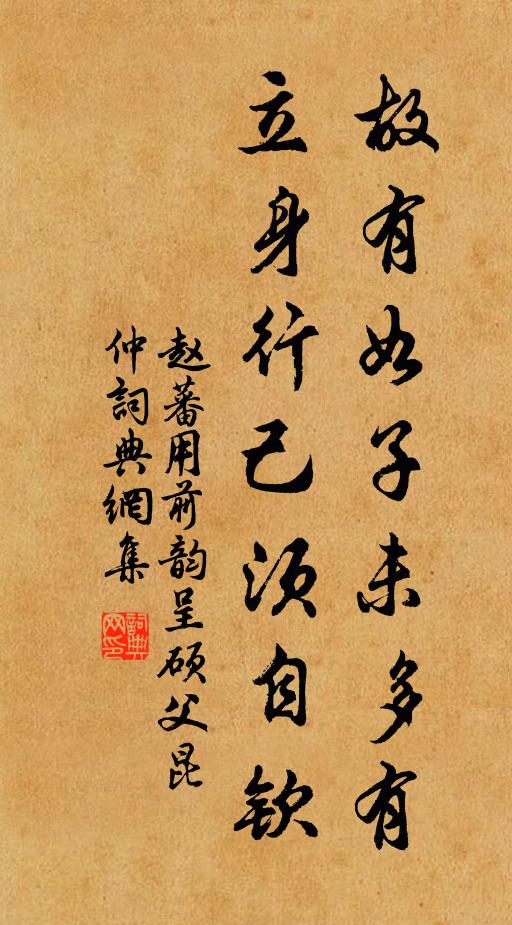 故有如子未多有
立身行己须自欽
赵蕃用前韵呈硕父昆
仲詞典網集
詞典網印